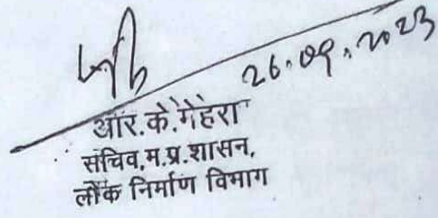 26.09.2023
आर.के.मेहरा
सचिव,म.प्र.शासन,
लोक निर्माण विभाग